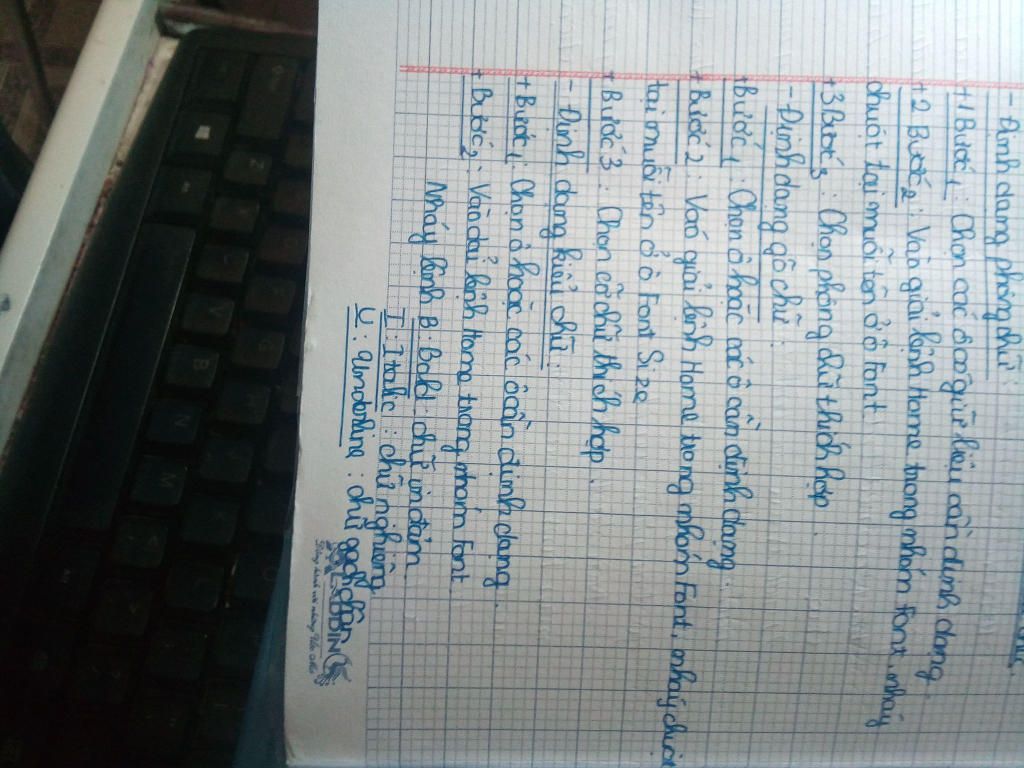 - Định dạng phông chữ:
+ 1 Bước 1: Chọn các ô có giữ liệu cần định dạng
+ 2 Bước 2: Vào giải lệnh Home trong nhóm Font, nháy
chuột tại mũi tên ở ô Font
+ 3 Bước 3: Chọn phông chữ thích hợp
- Định dạng gõ chữ:
+ Bước 1: Chọn ô hoặc các ô cần định dạng.
+ Bước 2: Vào giải lệnh Home trong nhóm Font, nháy chuột
tại mũi tên ở ô Font Size
+ Bước 3: Chọn cỡ chữ thích hợp.
- Định dạng kiểu chữ:
+ Bước 1: Chọn ô hoặc các ô cần định dạng.
+ Bước 2: Vào dải lệnh Home trong nhóm Font
Nháy lệnh B: Bold: chữ in đậm
I: Italic: chữ nghiêng
U: Underline: chữ gạch chân
Z
C
V
B
N
M